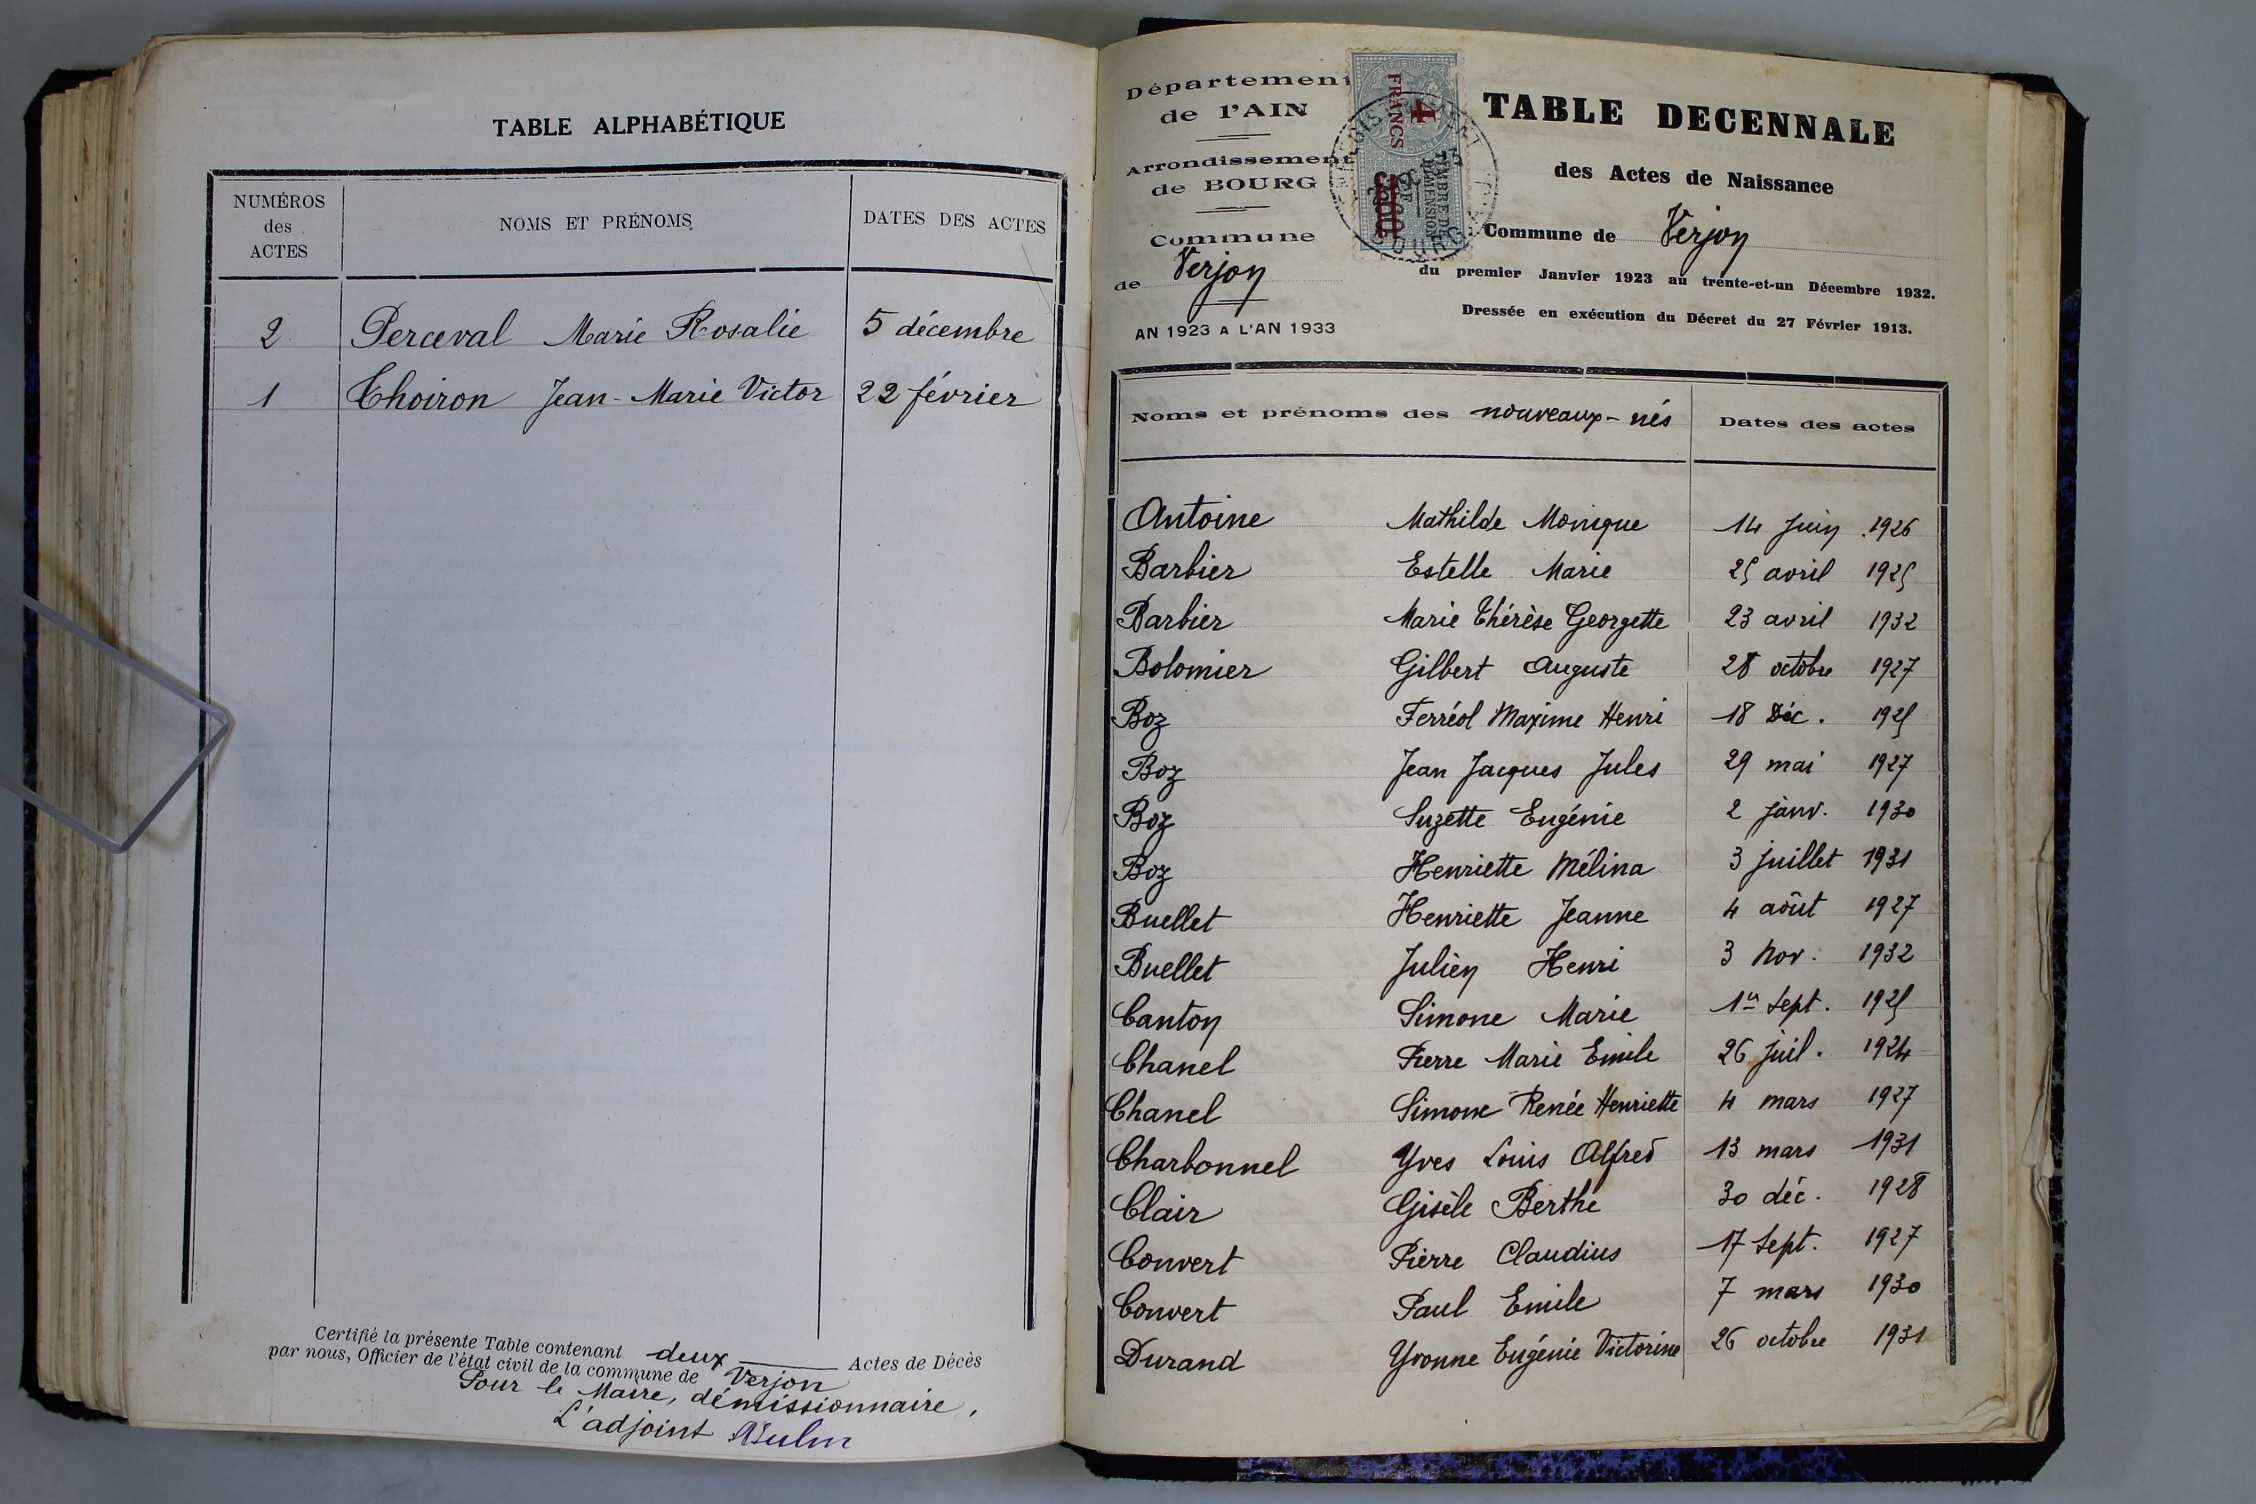 TABLE ALPHABÉTIQUE
NUMÉROS
des
ACTES
NOMS ET PRÉNOMS
DATES DES ACTES
2 Perceval Marie Rosalie 5 décembre
1 Thoiron Jean-Marie Victor 22 février
Certifié la présente Table contenant deux Actes de Décès
par nous, Officier de l'état civil de la commune de Verjon
Pour le Maire, démissionnaire,
L'adjoint
Département
de l'AIN
Arrondissement
de BOURG
Commune
de Verjon
AN 1923 A L'AN 1933
4
FRANCS
TIMBRE DE
DIMENSION
TABLE DECENNALE
des Actes de Naissance
Commune de Verjon
du premier Janvier 1923 au trente-et-un Décembre 1932.
Dressée en exécution du Décret du 27 Février 1913.
Noms et prénoms des nouveaux-nés Dates des actes
Antoine Mathilde Monique 14 Juin 1926
Barbier Estelle Marie 25 avril 1925
Barbier Marie Thérèse Georgette 23 avril 1932
Bolomier Gilbert Auguste 28 octobre 1927
Boz Ferréol Maxime Henri 18 Déc. 1925
Boz Jean Jacques Jules 29 mai 1927
Boz Suzette Eugénie 2 janv. 1930
Boz Henriette Mélina 3 juillet 1931
Buellet Henriette Jeanne 4 août 1927
Buellet Julien Henri 3 Nov. 1932
Canton Simone Marie 1er Sept. 1925
Chanel Pierre Marie Emile 26 Juil. 1924
Chanel Simone Renée Henriette 4 mars 1927
Charbonnel Yves Louis Alfred 13 mars 1931
Clair Gisèle Berthe 30 déc. 1928
Convert Pierre Claudius 17 Sept. 1927
Convert Paul Emile 7 mars 1930
Durand Yvonne Eugénie Victorine 26 octobre 1931